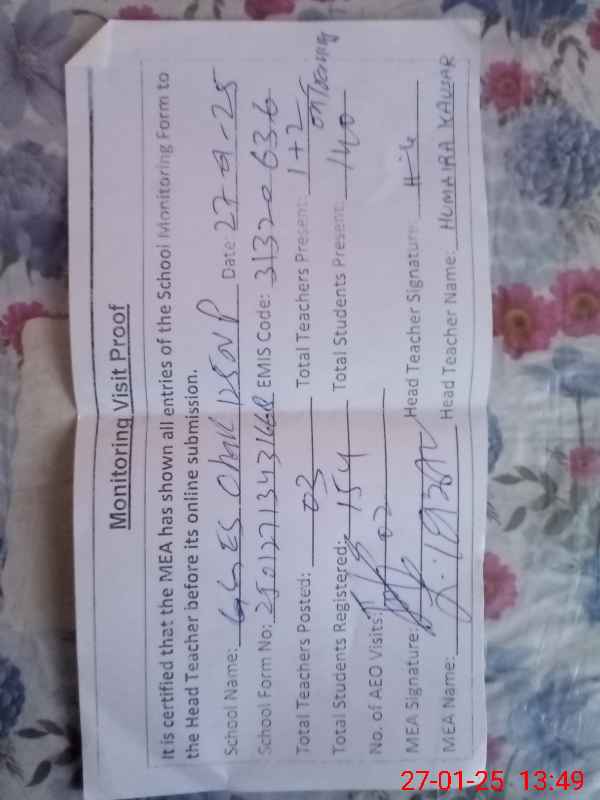 Monitoring Visit Proof
It is certified that the MEA has shown all entries of the School Monitoring Form to
the Head Teacher before its online submission.
School Name: GGES Chak 125 NP Date: 27-9-25
School Form No: EMIS Code: 31320636
Total Teachers Posted: 03 Total Teachers Present: 1+2 on Training
Total Students Registered: 154 Total Students Present: 140
No. of AEO Visits: 02
MEA Signature: Head Teacher Signature:
MEA Name: Head Teacher Name: HUMAIRA KAUSAR
27-01-25 13:49